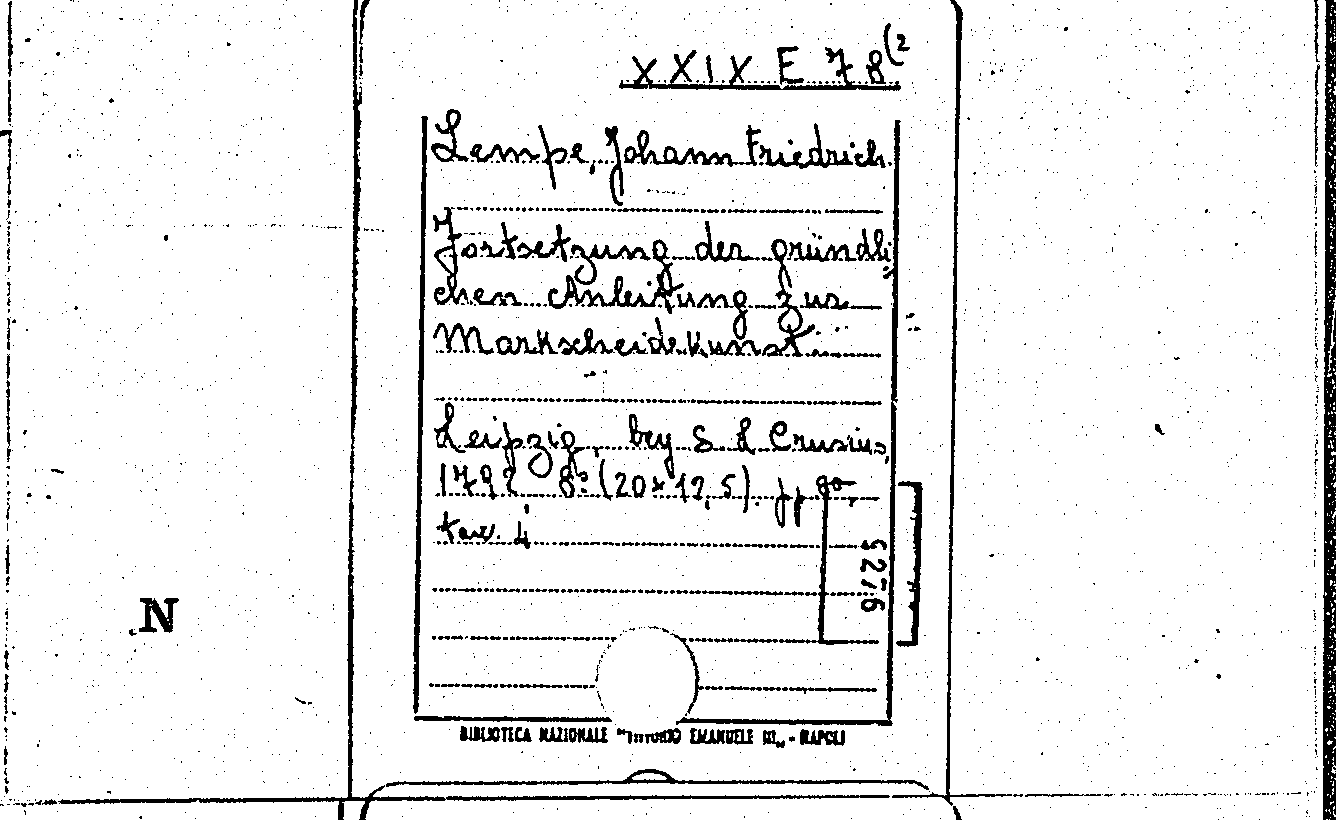 XXIX E 78(2
Lempe, Johann Friedrich.
Fortsetzung der gründli
chen Anleitung zur
Markscheidekunst...
Leipzig, bey S L Crusius,
1792 8º (20×12,5). pp 90,
tav. 4
5276
N
BIBLIOTECA NAZIONALE "VITTORIO EMANUELE III" - NAPOLI